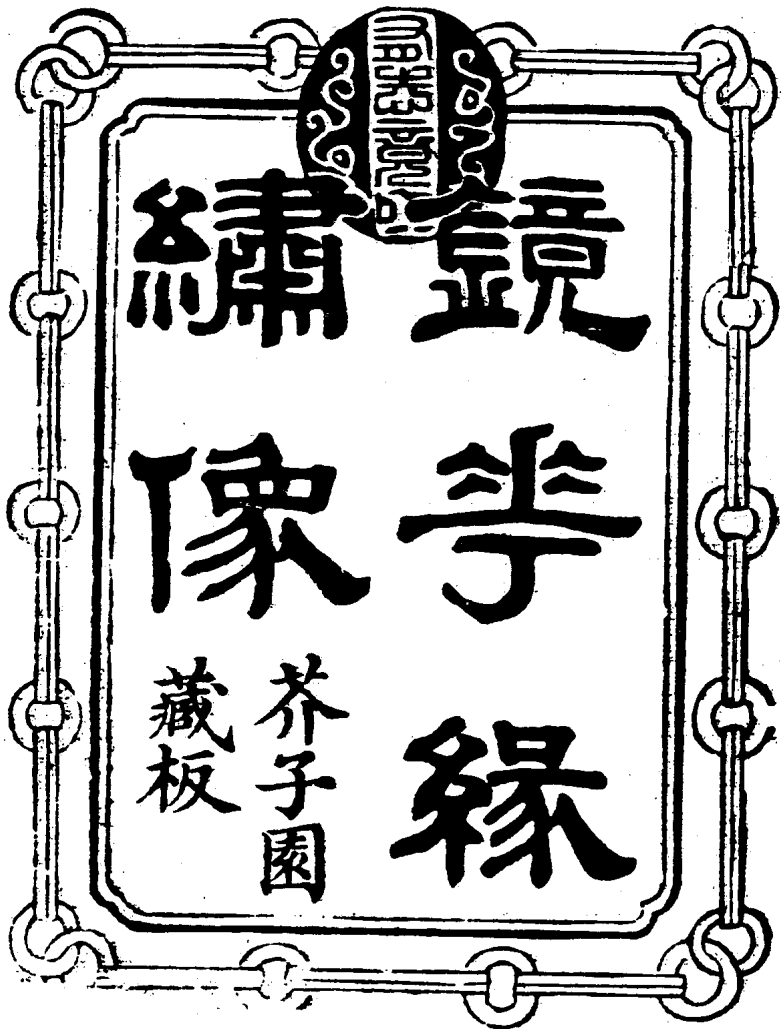 鏡花緣
繡像
芥子園
藏板